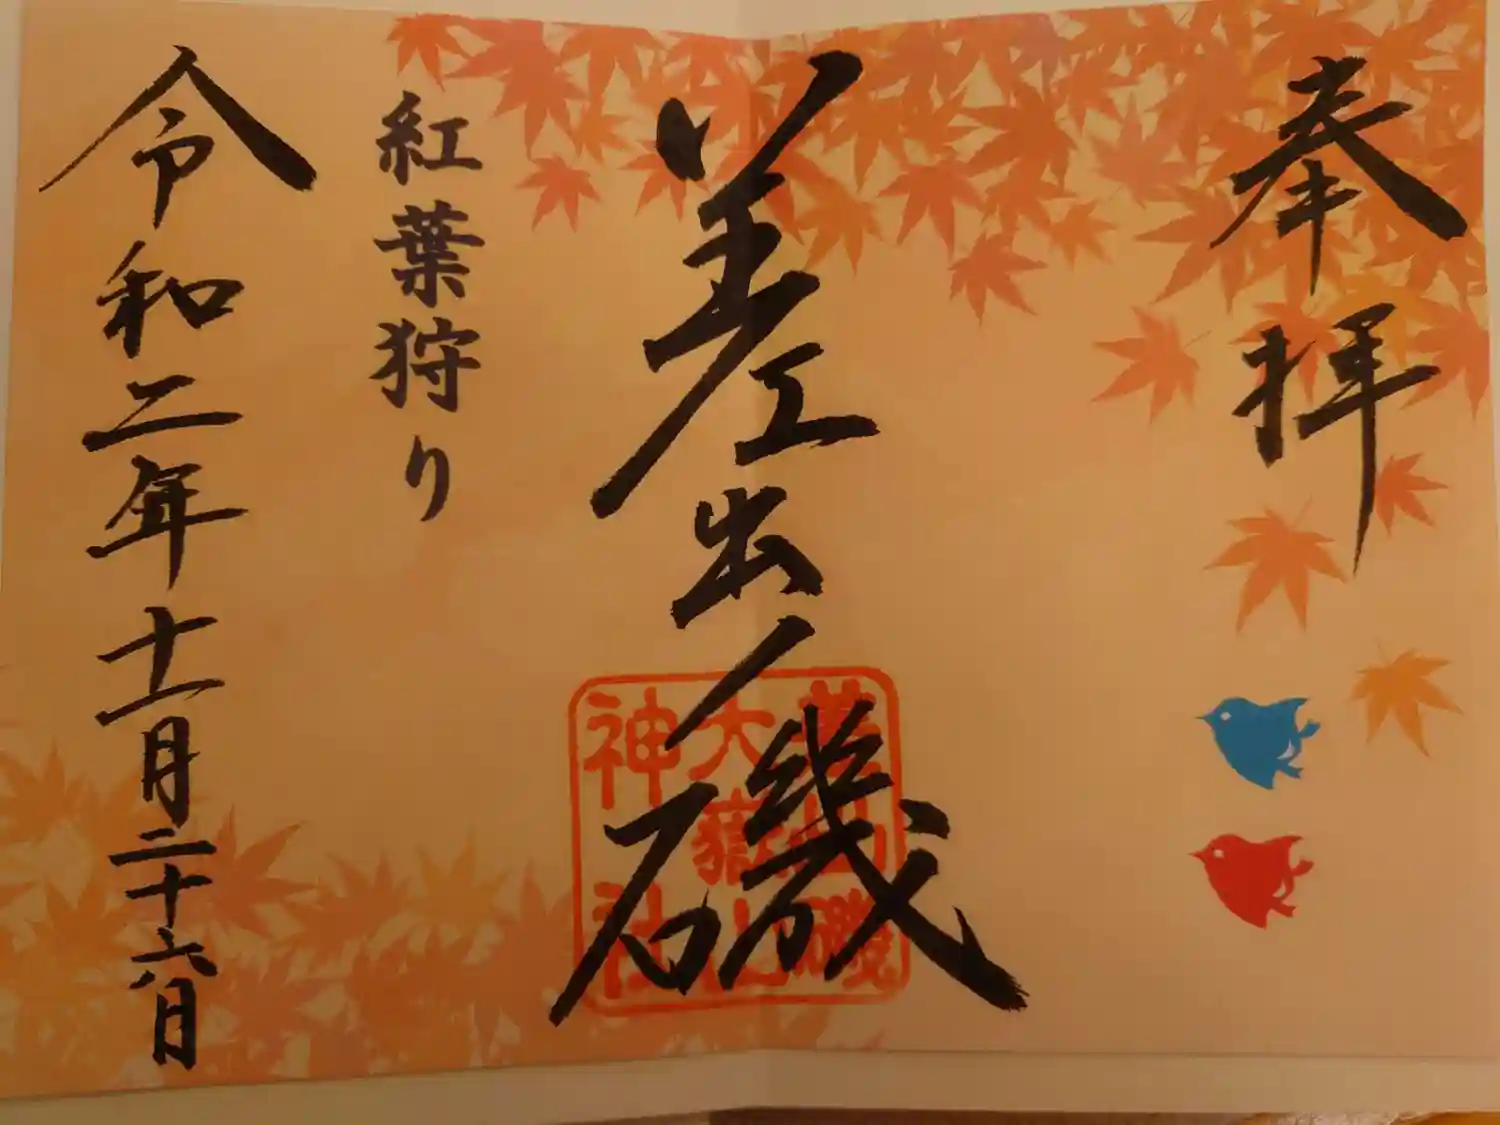 奉拝
差出ノ磯
差出磯
大嶽山
神社
紅葉狩り
令和二年十一月二十六日